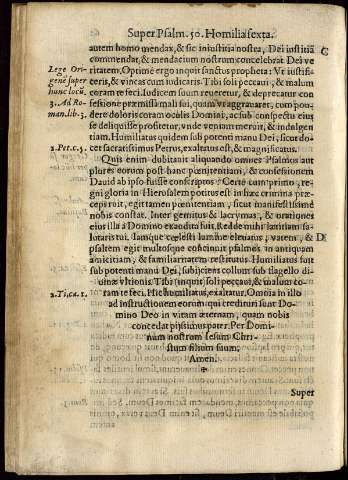 Super Psalm. 50. Homilia sexta.
autem homo mendax, & sic iniustitia nostra, Dei iustitiā C
commendat, & mendacium nostrum concelebrat Dei ve
Lege Ori ritatem. Optime ergo inquit sanctus propheta: Vt iustifi-
genē super ceris, & vincas cum iudicaris. Tibi soli peccaui, & malum
hunc locū. coram te feci. Iudicem suum reueretur, & deprecatur con
3. Ad Ro- fessione præmissa mali sui, quam vt aggrauaret, cum pon-
man. lib. 3. dere doloris coram oculis Domini, ac sub conspectu eius
se deliquisse profitetur, vnde veniam mereatur, & indulgen
tiam. Humiliatus quidem sub potenti manu Dei, sicut do-
1. Pet. c. 5. cet sacratissimus Petrus, exaltatus est, & magnificatus.
Quis enim dubitauit aliquando omnes Psalmos aut
plures eorum post hanc pœnitentiam, & confessionem
Dauid ab ipso fuisse conscriptos? Certe cum primo, re-
gni gloria in Hierusalem potitus est in hæc crimina præ-
ceps ruit, egit tamen pœnitentiam, sicut manifestissimè
nobis constat. Inter gemitus & lacrymas, & orationes
eius illa à Domino exaudita fuit, Redde mihi lætitiam sa-
lutaris tui. Iamque cœlesti iamque eleuatus, vatem, & D
psaltem egit multosque concinuit psalmos in antiquam
amicitiam, & familiaritatem restitutus. Humiliatus fuit
sub potenti manu Dei, subijciens collum sub flagello di-
uinæ vltionis. Tibi (inquit) soli peccaui, & malum co-
2. Ti. ca. 1. ram te feci. Hic humiliatus, exaltatur. Omnia in illo
ad instructionem eorum qui credituri sunt Do-
mino Deo in vitam æternam, quam nobis
concedat pijssimus pater. Per Domi-
num nostrum Iesum Chri-
stum filium suum.
Amen.
Super